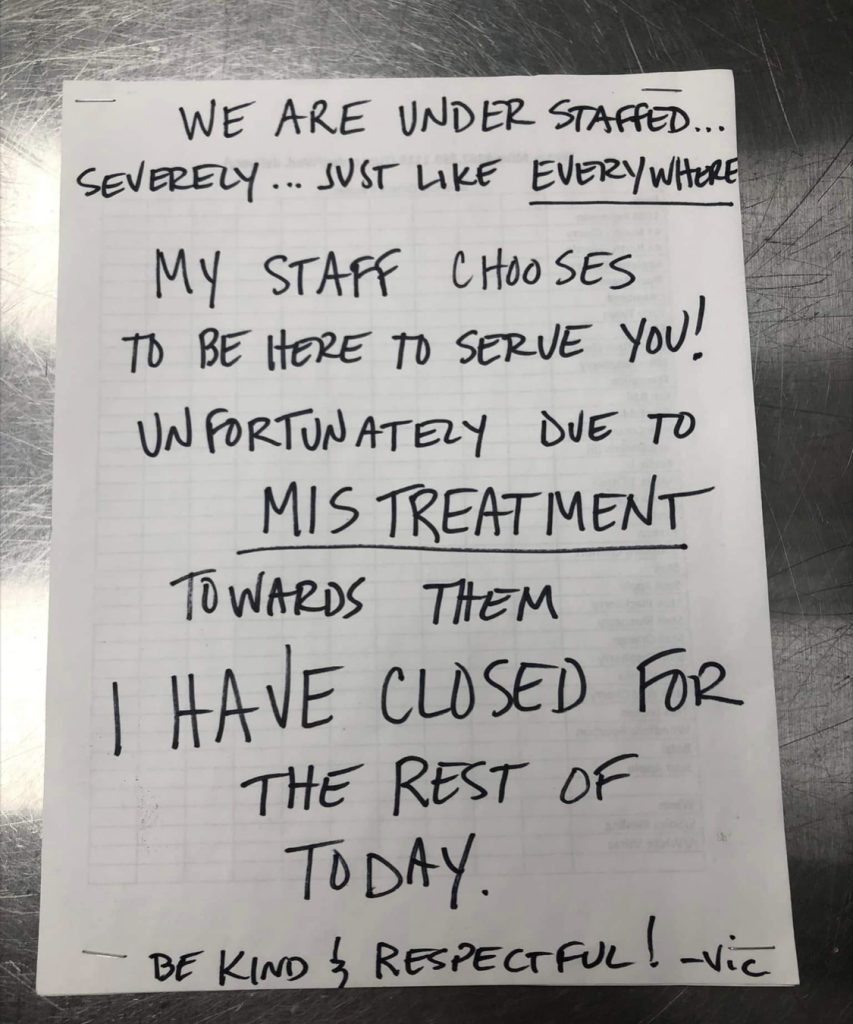 WE ARE UNDER STAFFED...
SEVERELY... JUST LIKE EVERYWHERE
MY STAFF CHOOSES
TO BE HERE TO SERVE YOU!
UNFORTUNATELY DUE TO
MISTREATMENT
TOWARDS THEM
I HAVE CLOSED FOR
THE REST OF
TODAY.
BE KIND & RESPECTFUL! -Vic